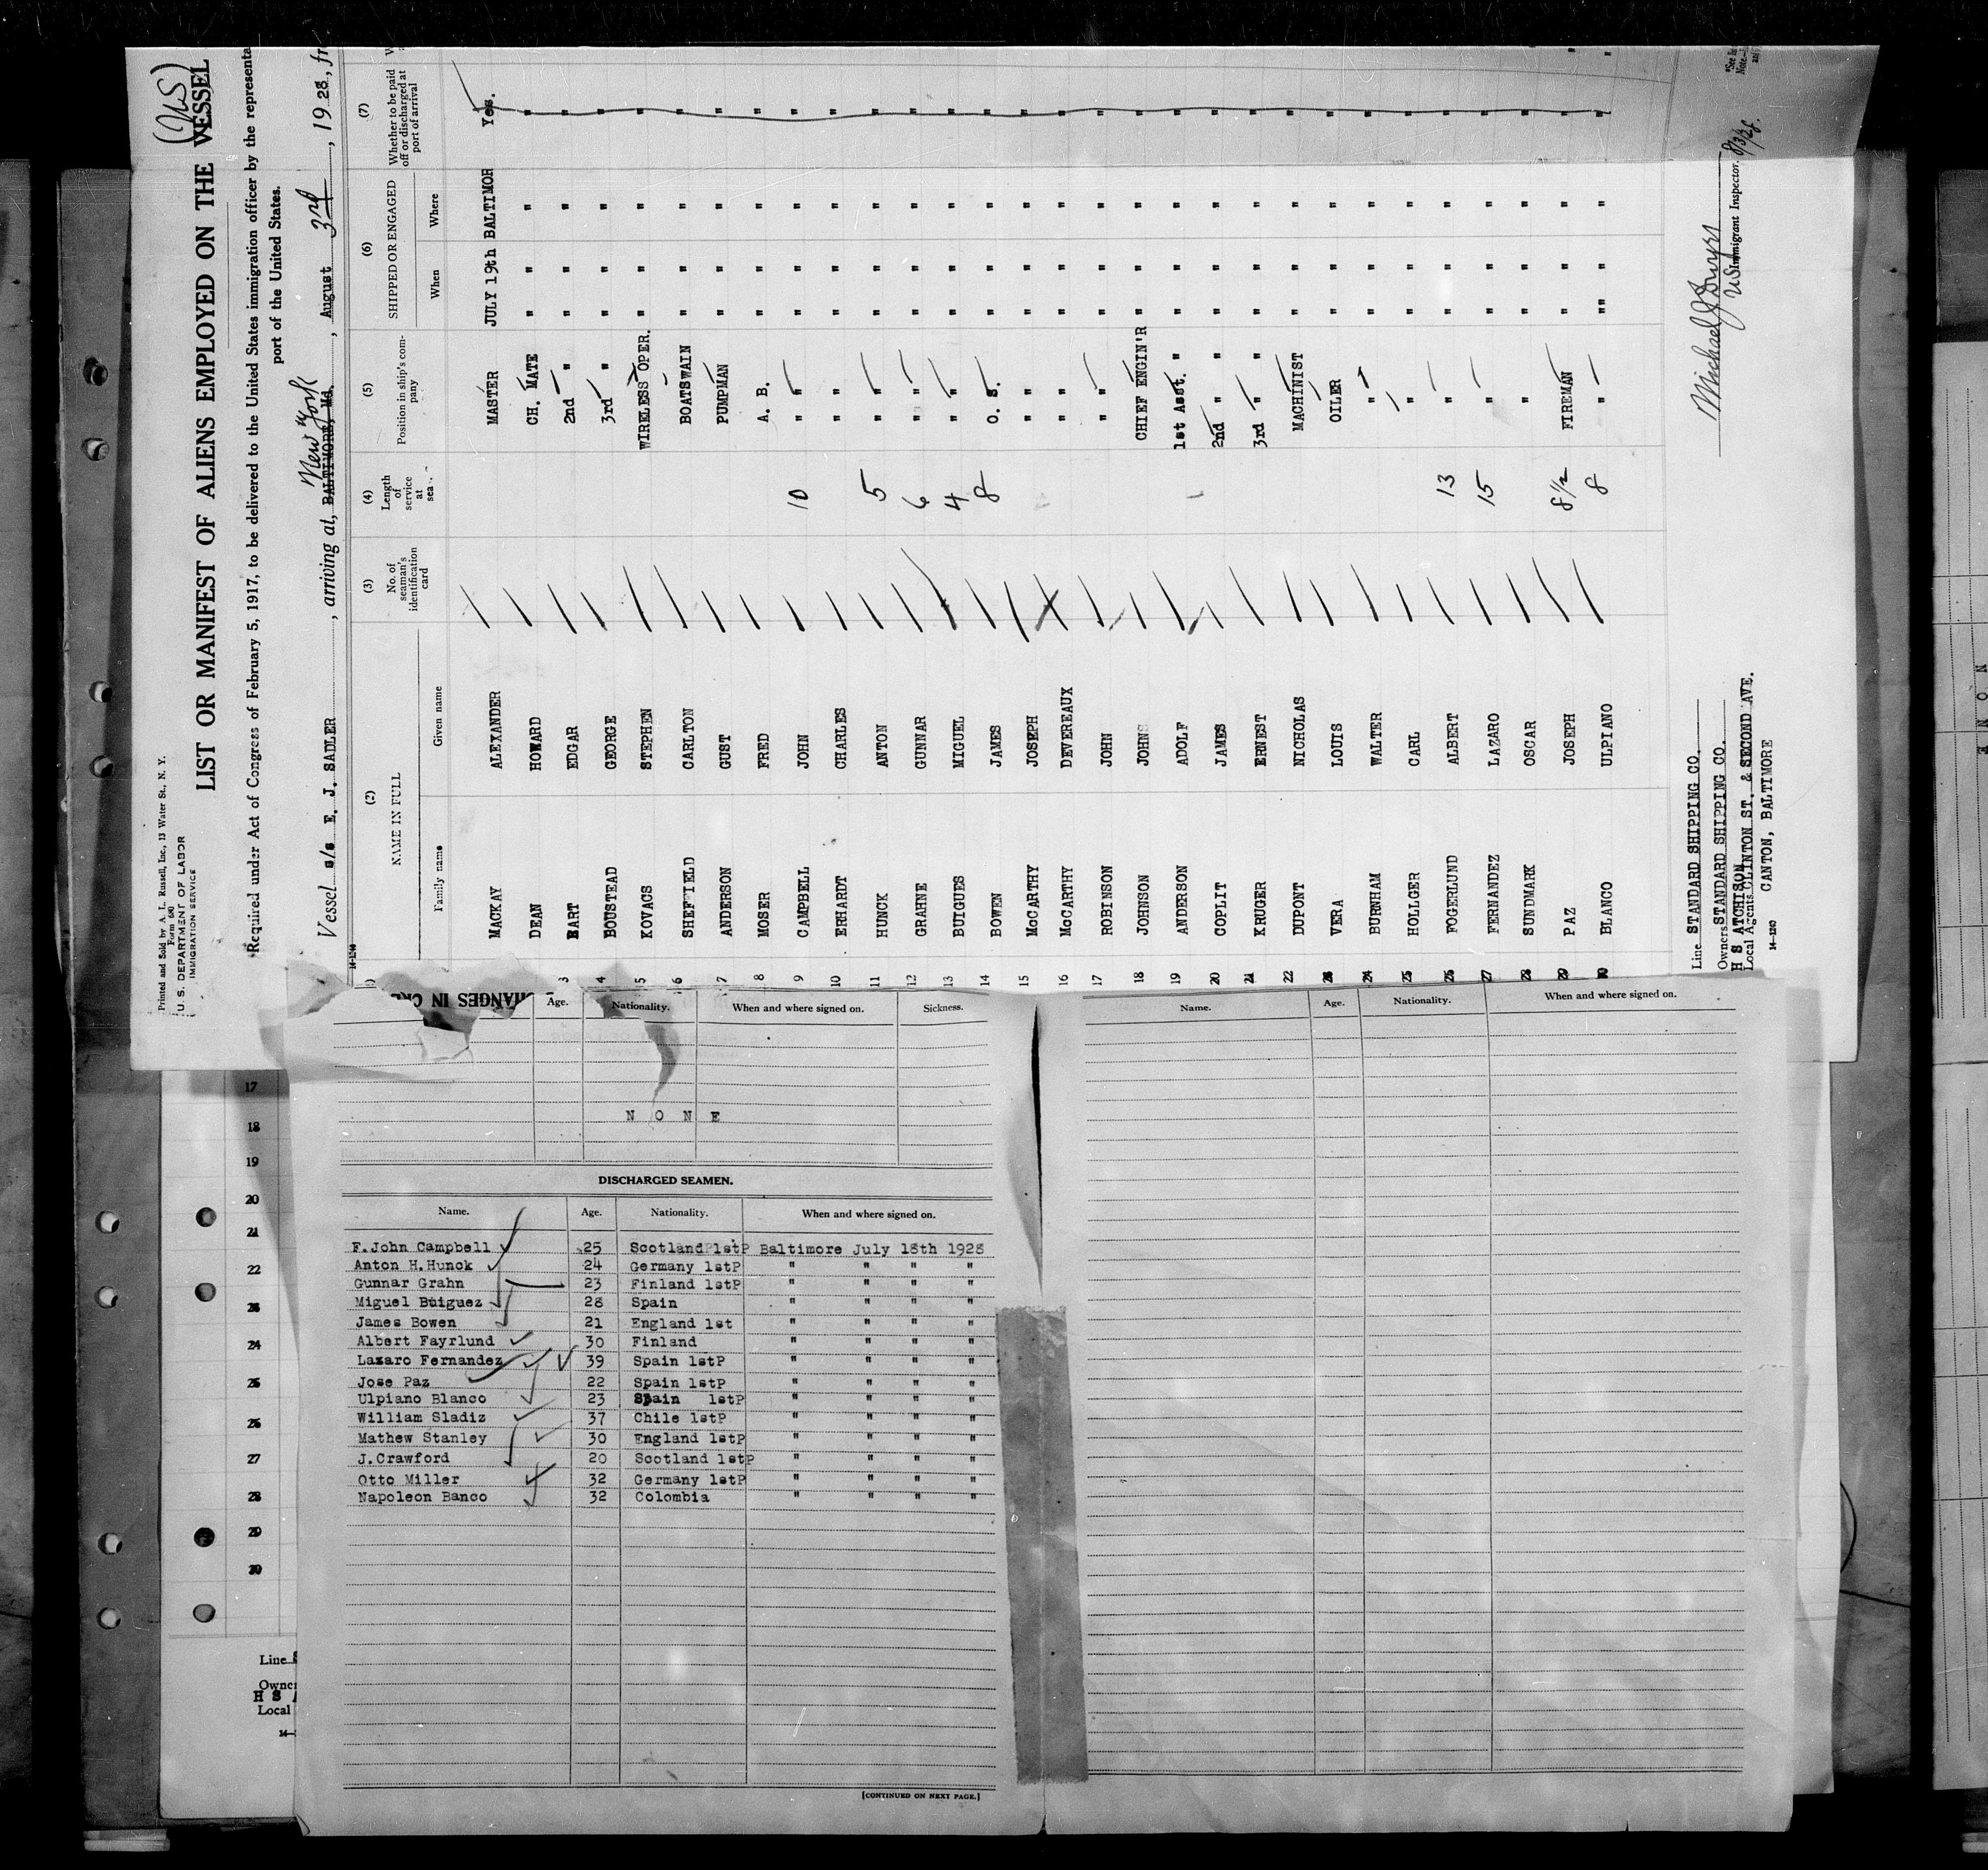 (US)
Printed and Sold by A. L. Russell, Inc., 13 Water St., N. Y.
Form 680
U. S. DEPARTMENT OF LABOR
IMMIGRATION SERVICE
LIST OR MANIFEST OF ALIENS EMPLOYED ON THE VESSEL
Required under Act of Congress of February 5, 1917, to be delivered to the United States immigration officer by the representa
port of the United States.
Vessel s/s E. J. SADLER, arriving at, BALTIMORE, Md. New York, August 3rd, 1928, fr
14-1240
(2) (3) (4) (5) (6) (7)
NAME IN FULL
Family name Given name
No. of seaman's identification card
Length of service at sea
Position in ship's company
SHIPPED OR ENGAGED
When Where
Whether to be paid off or discharged at port of arrival
MACKAY ALEXANDER MASTER JULY 19th BALTIMOR Yes.
DEAN HOWARD CH. MATE " " " "
3 HART EDGAR 2nd " " " " "
4 BOUSTEAD GEORGE 3rd " " " " "
5 KOVACS STEPHEN WIRELESS OPER. " " " "
6 SHEFFIELD CARLTON BOATSWAIN " " " "
7 ANDERSON GUST PUMPMAN " " " "
8 MOSER FRED A. B. " " " "
9 CAMPBELL JOHN 10 " " " " " "
10 EHRHARDT CHARLES " " " " " "
11 HUNCK ANTON 5 " " " " " "
12 GRAHNE GUNNAR 6 " " " " " "
13 BUIGUES MIGUEL 4 " " " " " "
14 BOWEN JAMES 8 O. S. " " " "
15 McCARTHY JOSEPH " " " " " "
16 McCARTHY DEVEREAUX " " " " " "
17 ROBINSON JOHN " " " " " "
18 JOHNSON JOHN CHIEF ENGIN'R " " " "
19 ANDERSON ADOLF 1st Asst. " " " " "
20 COPLIT JAMES 2nd " " " " " "
21 KRUGER ERNEST 3rd " " " " " "
22 DUPONT NICHOLAS MACHINIST " " " "
23 VERA LOUIS OILER " " " "
24 BURNHAM WALTER " " " " " "
25 HOLLGER CARL " " " " "
26 FOGERLUND ALBERT 13 " " " " "
27 FERNANDEZ LAZARO 15 " " " " "
28 SUNDMARK OSCAR " " " " "
29 PAZ JOSEPH 8 1/2 FIREMAN " " " "
30 BLANCO ULPIANO 8 " " " " "
Line STANDARD SHIPPING CO.
Owners STANDARD SHIPPING CO.
H S ATCHISON
Local Agents CLINTON ST. & SECOND AVE.
CANTON, BALTIMORE
14-1240
US Immigrant Inspector.
8/3/28.
CHANGES IN CRE
Age. Nationality. When and where signed on. Sickness.
N O N E
DISCHARGED SEAMEN.
Name. Age. Nationality. When and where signed on.
F.John Campbell 25 Scotland 1stP Baltimore July 18th 1928
Anton H.Hunck 24 Germany 1stP " " " "
Gunnar Grahn 23 Finland 1stP " " " "
Miguel Buiguez 28 Spain " " " "
James Bowen 21 England 1st " " " "
Albert Fayrlund 30 Finland " " " "
Lazaro Fernandez 39 Spain 1stP " " " "
Jose Paz 22 Spain 1stP " " " "
Ulpiano Blanco 23 Spain 1stP " " " "
William Sladiz 37 Chile 1stP " " " "
Mathew Stanley 30 England 1stP " " " "
J.Crawford 20 Scotland 1stP " " " "
Otto Miller 32 Germany 1stP " " " "
Napoleon Banco 32 Colombia " " " "
[CONTINUED ON NEXT PAGE.]
Name. Age. Nationality. When and where signed on.
17
18
19
20
21
22
23
24
25
26
27
28
29
30
Line
Owner
H S
Local
14-
N O N